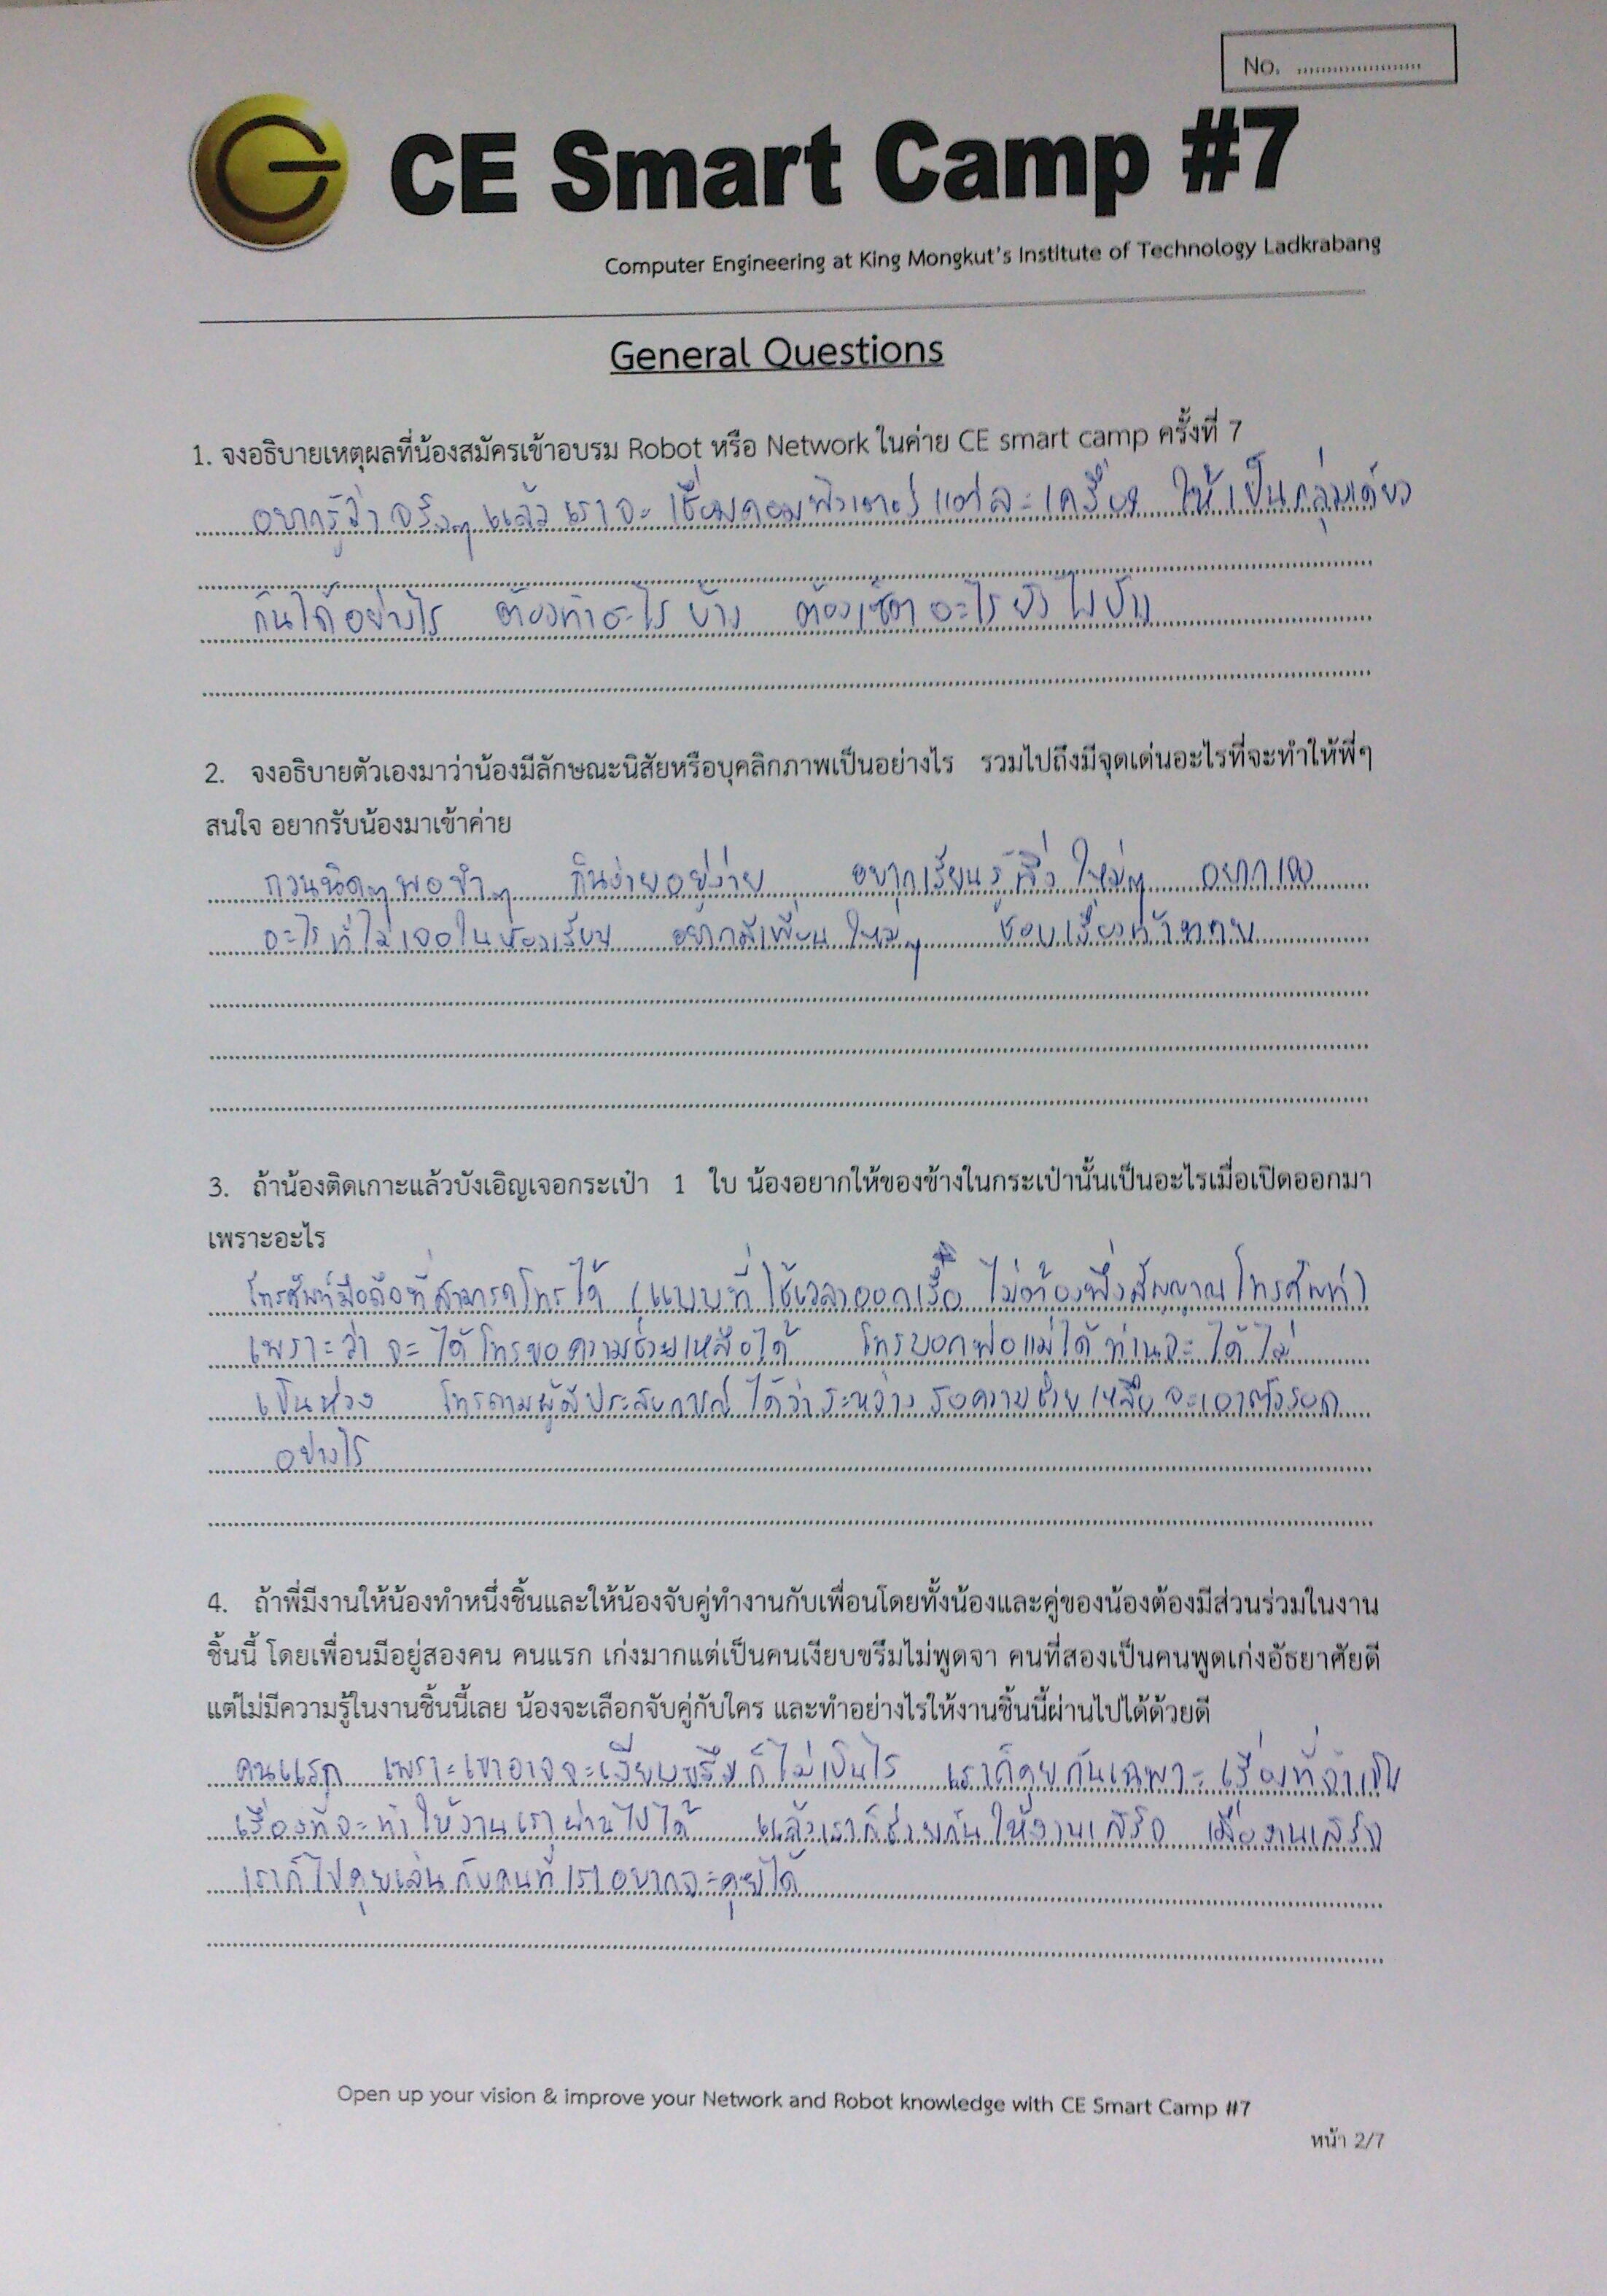 No. ......................
CE Smart Camp #7
Computer Engineering at King Mongkut's Institute of Technology Ladkrabang
General Questions
1. จงอธิบายเหตุผลที่น้องสมัครเข้าอบรม Robot หรือ Network ในค่าย CE smart camp ครั้งที่ 7
อยากรู้ว่าจริงๆ แล้ว เราจะ เชื่อมคอมพิวเตอร์ แต่ละเครื่อง ให้เป็นกลุ่มเดียว
กันได้อย่างไร ต้องทำอะไรบ้าง ต้องเซ็ตอะไรยังไงบ้าง
2. จงอธิบายตัวเองมาว่าน้องมีลักษณะนิสัยหรือบุคลิกภาพเป็นอย่างไร รวมไปถึงมีจุดเด่นอะไรที่จะทำให้พี่ๆ
สนใจ อยากรับน้องมาเข้าค่าย
กวนนิดๆพอขำๆ กินง่ายอยู่ง่าย อยากเรียนรู้สิ่งใหม่ๆ อยากเจอ
อะไรที่ไม่เจอในห้องเรียน อยากมีเพื่อนใหม่ๆ ชอบเรื่องท้าทาย
3. ถ้าน้องติดเกาะแล้วบังเอิญเจอกระเป๋า 1 ใบ น้องอยากให้ของข้างในกระเป๋านั้นเป็นอะไรเมื่อเปิดออกมา
เพราะอะไร
โทรศัพท์มือถือที่สามารถโทรได้ (แบบที่ใช้เวลาออกเรือ ไม่ต้องพึ่งสัญญาณโทรศัพท์)
เพราะว่า จะได้โทรขอความช่วยเหลือได้ โทรบอกพ่อแม่ได้ ท่านจะได้ไม่
เป็นห่วง โทรถามผู้มีประสบการณ์ ได้ว่าระหว่างรอความช่วยเหลือจะเอาตัวรอด
อย่างไร
4. ถ้าพี่มีงานให้น้องทำหนึ่งชิ้นและให้น้องจับคู่ทำงานกับเพื่อนโดยทั้งน้องและคู่ของน้องต้องมีส่วนร่วมในงาน
ชิ้นนี้ โดยเพื่อนมีอยู่สองคน คนแรก เก่งมากแต่เป็นคนเงียบขรึมไม่พูดจา คนที่สองเป็นคนพูดเก่งอัธยาศัยดี
แต่ไม่มีความรู้ในงานชิ้นนี้เลย น้องจะเลือกจับคู่กับใคร และทำอย่างไรให้งานชิ้นนี้ผ่านไปได้ด้วยดี
คนแรก เพราะเขาอาจจะเงียบขรึมก็ไม่เป็นไร เราก็คุยกันเฉพาะเรื่องที่จำเป็น
เรื่องที่จะทำให้งานเราผ่านไปได้ แล้วเราก็ช่วยกันให้งานเสร็จ เมื่องานเสร็จ
เราก็ไปคุยเล่นกับคนที่เราอยากจะคุยได้
Open up your vision & improve your Network and Robot knowledge with CE Smart Camp #7
หน้า 2/7